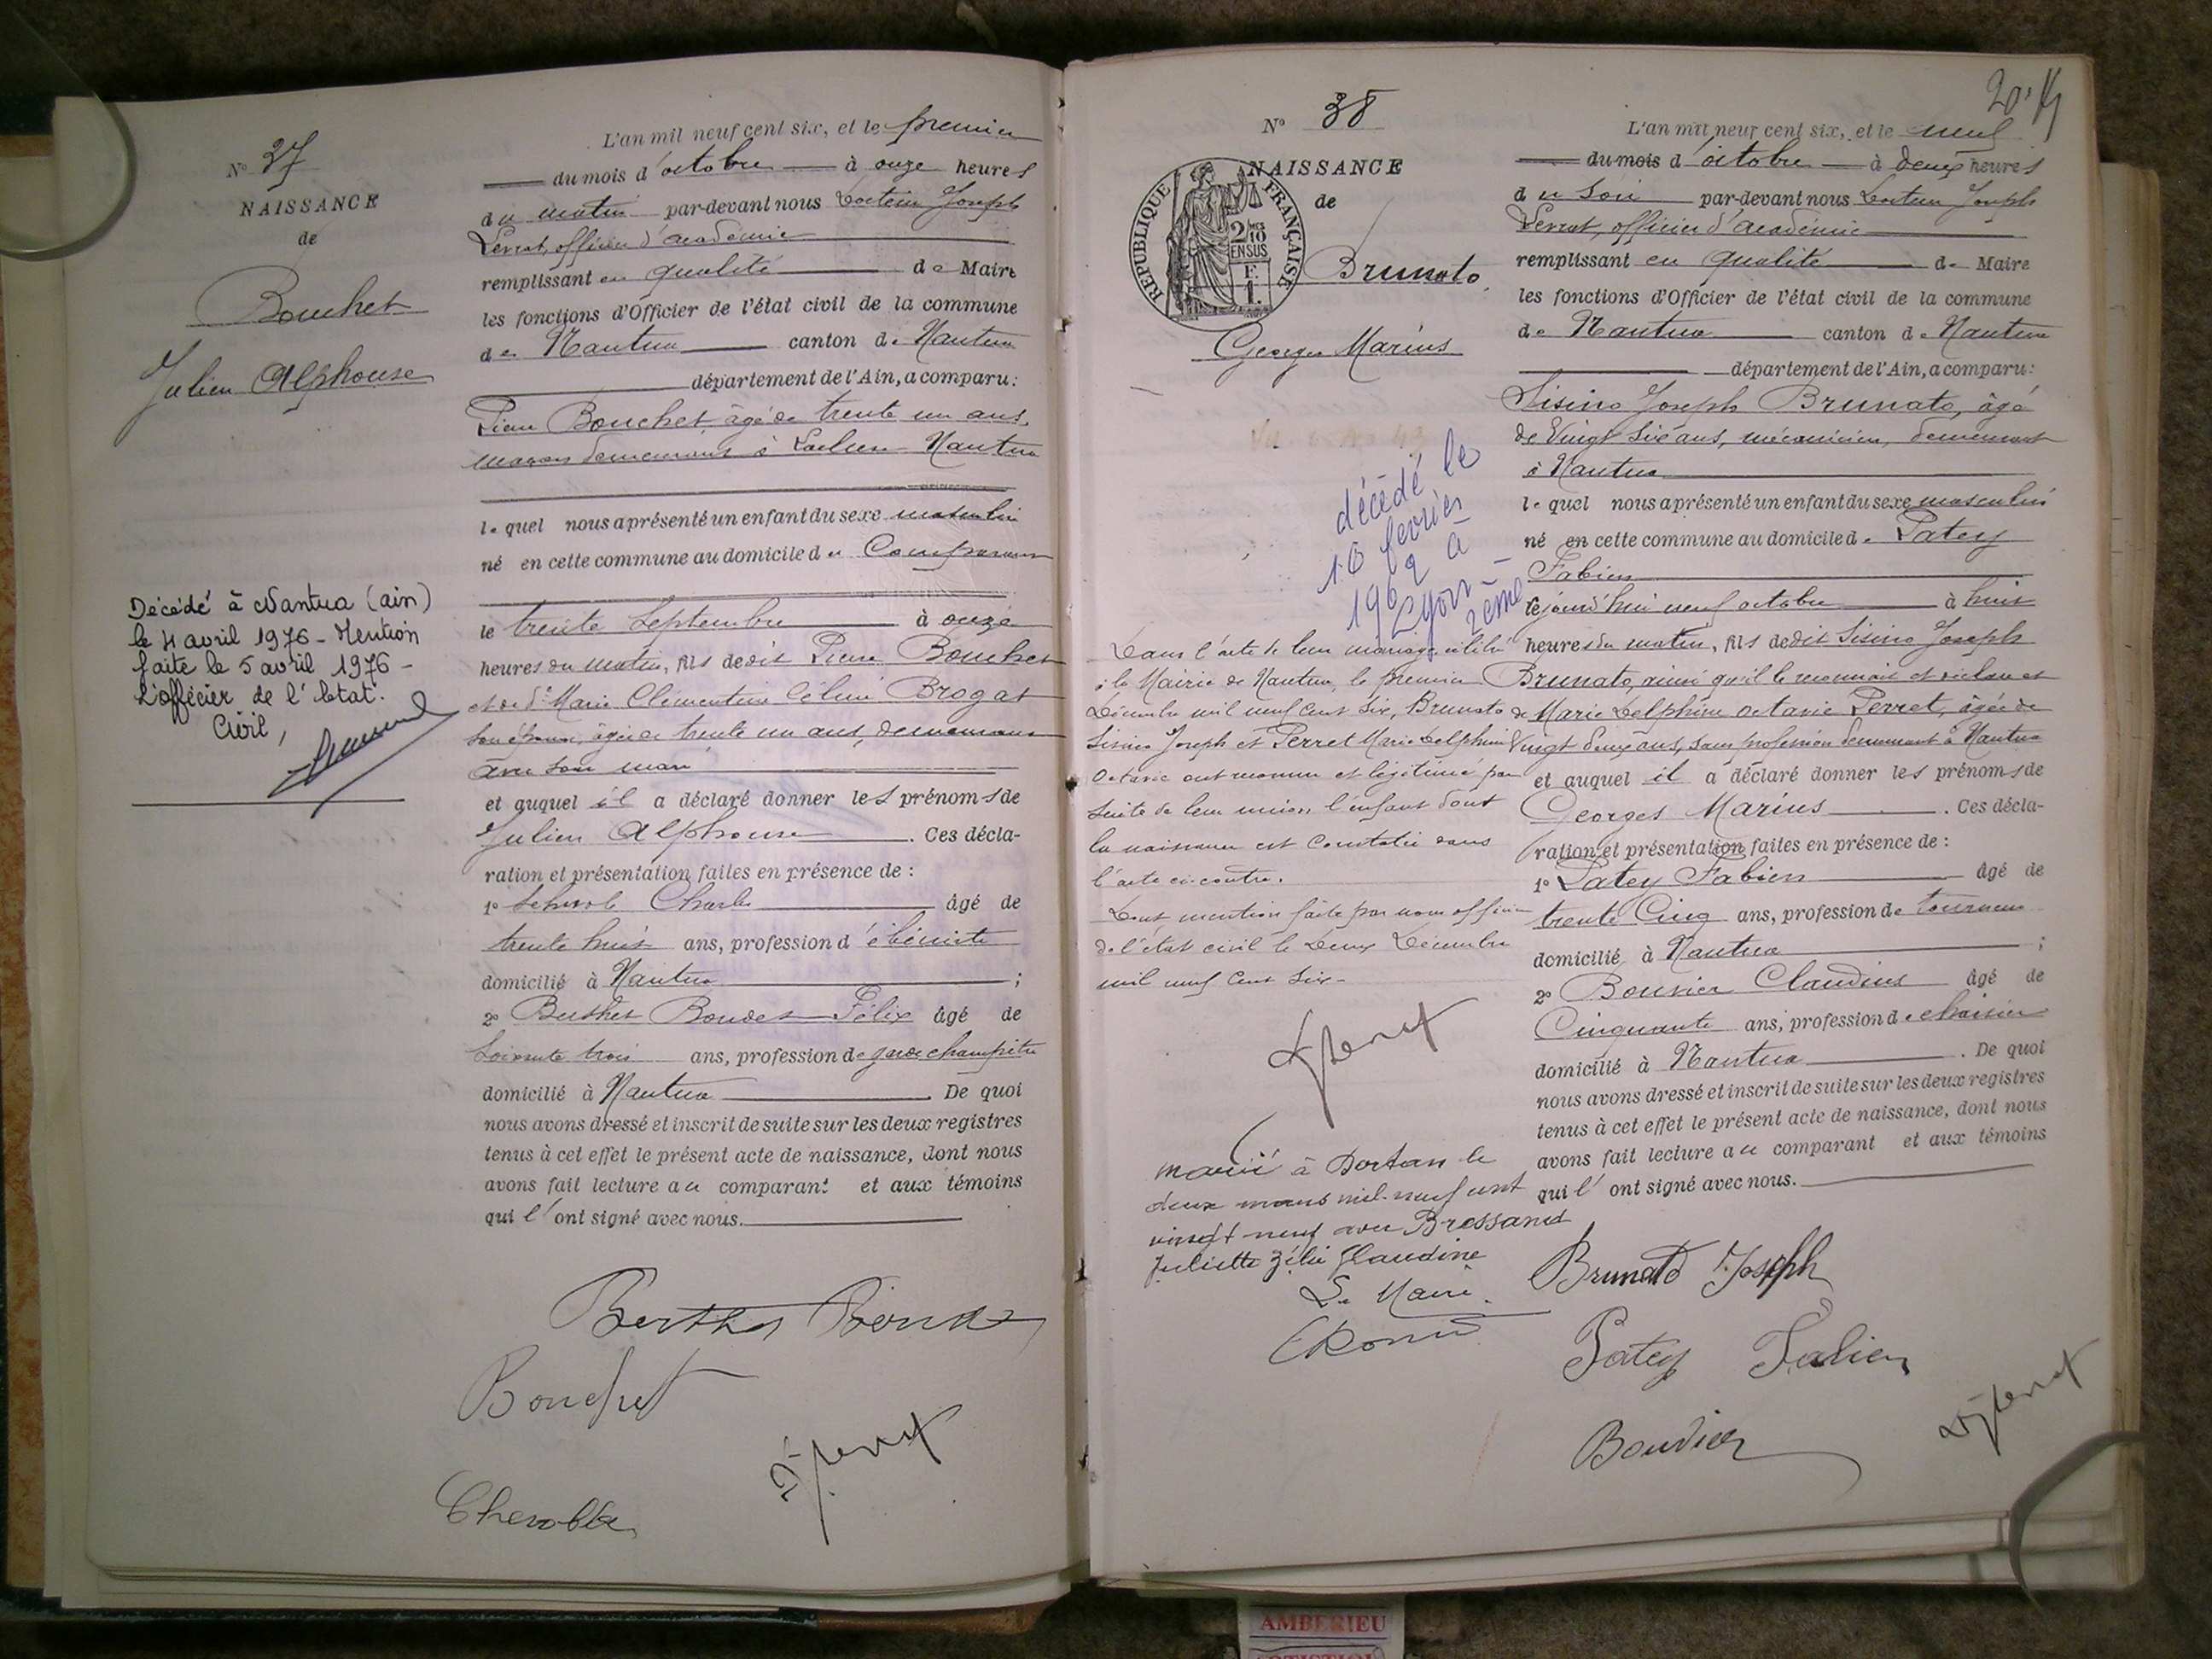 N° 37
NAISSANCE
de
Bouchet
Julien Alphonse
Décédé à Nantua (ain)
le 4 avril 1976 - Mention
faite le 5 avril 1976 -
L'officier de l'Etat.
Civil,
L'an mil neuf cent six, et le premier
du mois d'octobre à onze heures
du matin par-devant nous Docteur Joseph
officier d'académie
remplissant en qualité de Maire
les fonctions d'Officier de l'état civil de la commune
de Nantua canton de Nantua
département de l'Ain, a comparu:
Pierre Bouchet âgé de trente un ans,
maçon demeurant à Nantua
lequel nous a présenté un enfant du sexe masculin
né en cette commune au domicile du Comparant
le trente Septembre à onze
heures du matin, fils dedit Pierre Bouchet
et de De Marie Clémentine Céline Brogat
son épouse, âgée de trente un ans, demeurant
avec son mari
et auquel il a déclaré donner les prénoms de
Julien Alphonse. Ces décla-
ration et présentation faites en présence de :
1° Charles âgé de
trente huit ans, profession d'ébéniste
domicilié à Nantua ;
2° Berthet Bondet Félix âgé de
Soixante trois ans, profession de garde champêtre
domicilié à Nantua. De quoi
nous avons dressé et inscrit de suite sur les deux registres
tenus à cet effet le présent acte de naissance, dont nous
avons fait lecture au comparant et aux témoins
qui l'ont signé avec nous.
Berthet Bondet
Bouchet
N° 38
NAISSANCE
de
RÉPUBLIQUE FRANÇAISE
2/10
EN SUS
Brunato
Georges Marius
décédé le
16 fevrier
1962 à
Lyon -
2ème
Dans l'acte de leur mariage célébré
à la Mairie de Nantua, le premier
Décembre mil neuf cent six, Brunato
Sisino Joseph et Perret Marie Delphine
Octavie ont reconnu et légitimé par
suite de leur union l'enfant dont
la naissance est constatée dans
l'acte ci-contre.
Dont mention faite par nous officier
de l'état civil le Deux Décembre
mil neuf cent six -
marié à Dortan le
deux mars mil-neuf cent
vingt neuf avec Brossand
Juliette Zélie Claudine
Le Maire.
20
L'an mil neuf cent six, et le neuf
du mois d'octobre à deux heures
du soir par-devant nous Docteur Joseph
officier d'académie
remplissant en qualité de Maire
les fonctions d'Officier de l'état civil de la commune
de Nantua canton de Nantua
département de l'Ain, a comparu:
Sisino Joseph Brunato, âgé
de Vingt six ans, mécanicien, demeurant
à Nantua
lequel nous a présenté un enfant du sexe masculin
né en cette commune au domicile de Patey
Fabien
cejourd'hui neuf octobre à huit
heures du matin, fils dedit Sisino Joseph
Brunato, ainsi qu'il le reconnait et déclare et
de Marie Delphine Octavie Perret, âgée de
Vingt deux ans, sans profession demeurant à Nantua
et auquel il a déclaré donner les prénoms de
Georges Marius. Ces décla-
ration et présentation faites en présence de :
1° Patey Fabien âgé de
trente Cinq ans, profession de tourneur
domicilié à Nantua ;
2° Bouvier Claudius âgé de
Cinquante ans, profession de chaisier
domicilié à Nantua. De quoi
nous avons dressé et inscrit de suite sur les deux registres
tenus à cet effet le présent acte de naissance, dont nous
avons fait lecture au comparant et aux témoins
qui l'ont signé avec nous.
Brunato Joseph
Patey Fabien
Bouvier
AMBERIEU